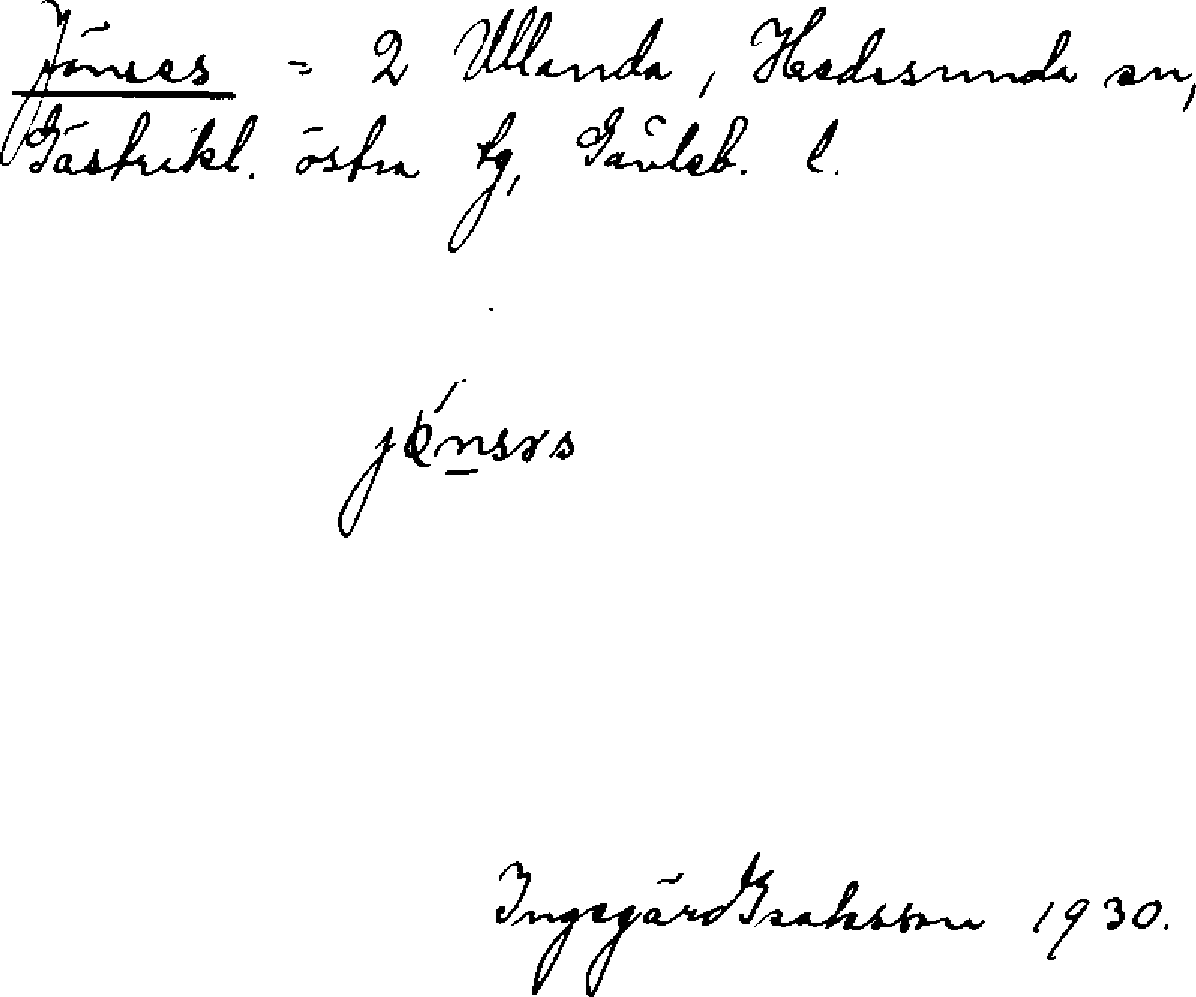 Jönses = 2 Ullanda, Hedesunda sn,
Gästrikl. östra tg, Gävleb. l.
jö́nsɤs
Ingegärd Isaksson 1930.